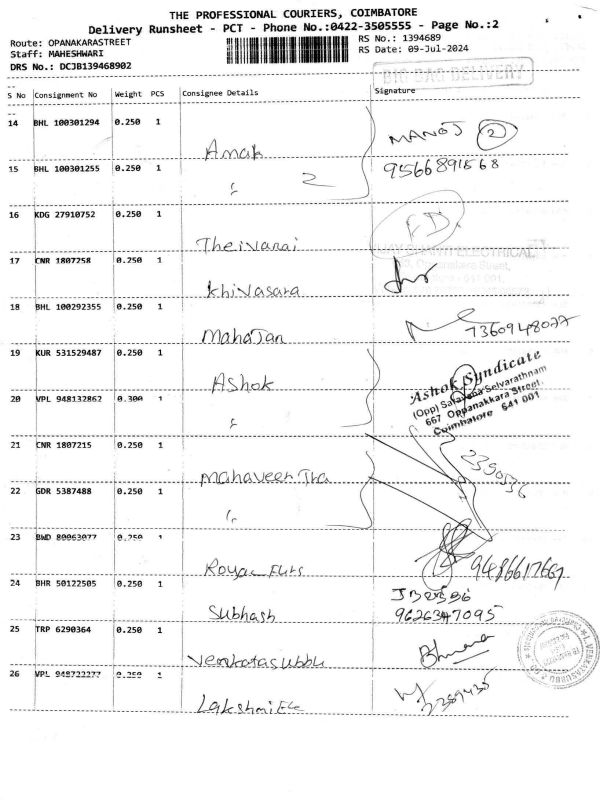 THE PROFESSIONAL COURIERS, COIMBATORE
Delivery Runsheet - PCT - Phone No.:0422-3505555 - Page No.:2
Route: OPANAKARASTREET
RS No.: 1394689
Staff: MAHESHWARI
RS Date: 09-Jul-2024
DRS No.: DCJB139468902
BIG BAG DELIVERY
S No Consignment No Weight PCS Consignee Details Signature
14 BHL 100301294 0.250 1
Amah MANOJ 2
15 BHL 100301255 0.250 1 9566891568
2
16 KDG 27910752 0.250 1
Theivanai
17 CNR 1807258 0.250 1
Khivasara
18 BHL 100292355 0.250 1
MahaJan 7360948077
19 KUR 531529487 0.250 1
Ashok
Ashok Syndicate
20 VPL 948132862 0.300 1
(Opp) Saravana Selvarathnam
667 Oppanakkara Street,
Coimbatore 641 001
21 CNR 1807215 0.250 1
mahaveer Tra 2390536
22 GDR 5387488 0.250 1
23 BWD 80063077 0.250 1
Royal
24 BHR 50122505 0.250 1
Subhash 9626347095
25 TRP 6290364 0.250 1
Venkatasubbu
26 VPL 948722277 0.250 1
Lakshmi Ele 2389435